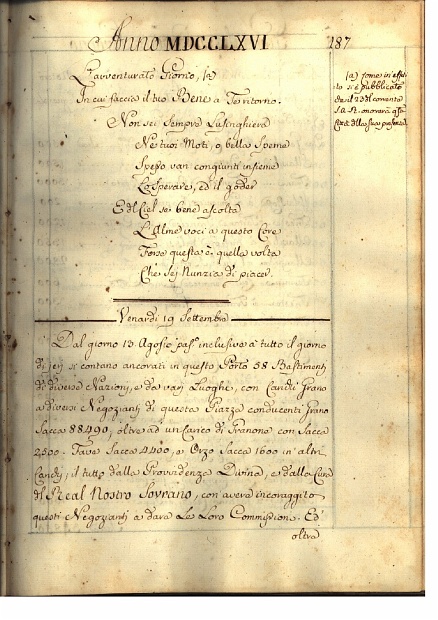 Anno MDCCLXVI
187
L'avventurato Giorno, (a
In cui faccia il tuo Bene a Te ritorno.
Non sei sempre Lusinghiera
Ne tuoi Moti, o bella Speme
Spesso van congiunti insieme
Lo sperare, ed il goder
E dl Ciel sei bene ascolta
L'Alme voci a questo Core
Forse questa è quella volta
Che sei Nunzia di piacer.
(a) come in effet
to si è pubblicato
che il 23 del corrente
S.M. onorarà
Città della sua presenza
Venardi 19 Settembre
Dal giorno 13 Agosto pass.º inclusive a tutto il giorno
di jeri si contano ancorati in questo Porto 58 Bastimenti
di diverse Nazioni, e da varj Luoghi, con Carichi Grano
a diversi Negozianti di questa Piazza conducenti Grano
Sacca 88490, oltre ad un Carico di Granone con Sacca
2500. Fave Sacca 4400, e Orzo Sacca 1600 in altri
Carichi, il tutto dalla Provvidenza Divina, e dalla Cura
del Real Nostro Sovrano, con avere incoraggito
questi Negozianti a dare Le Loro Commissioni. Ed
oltre